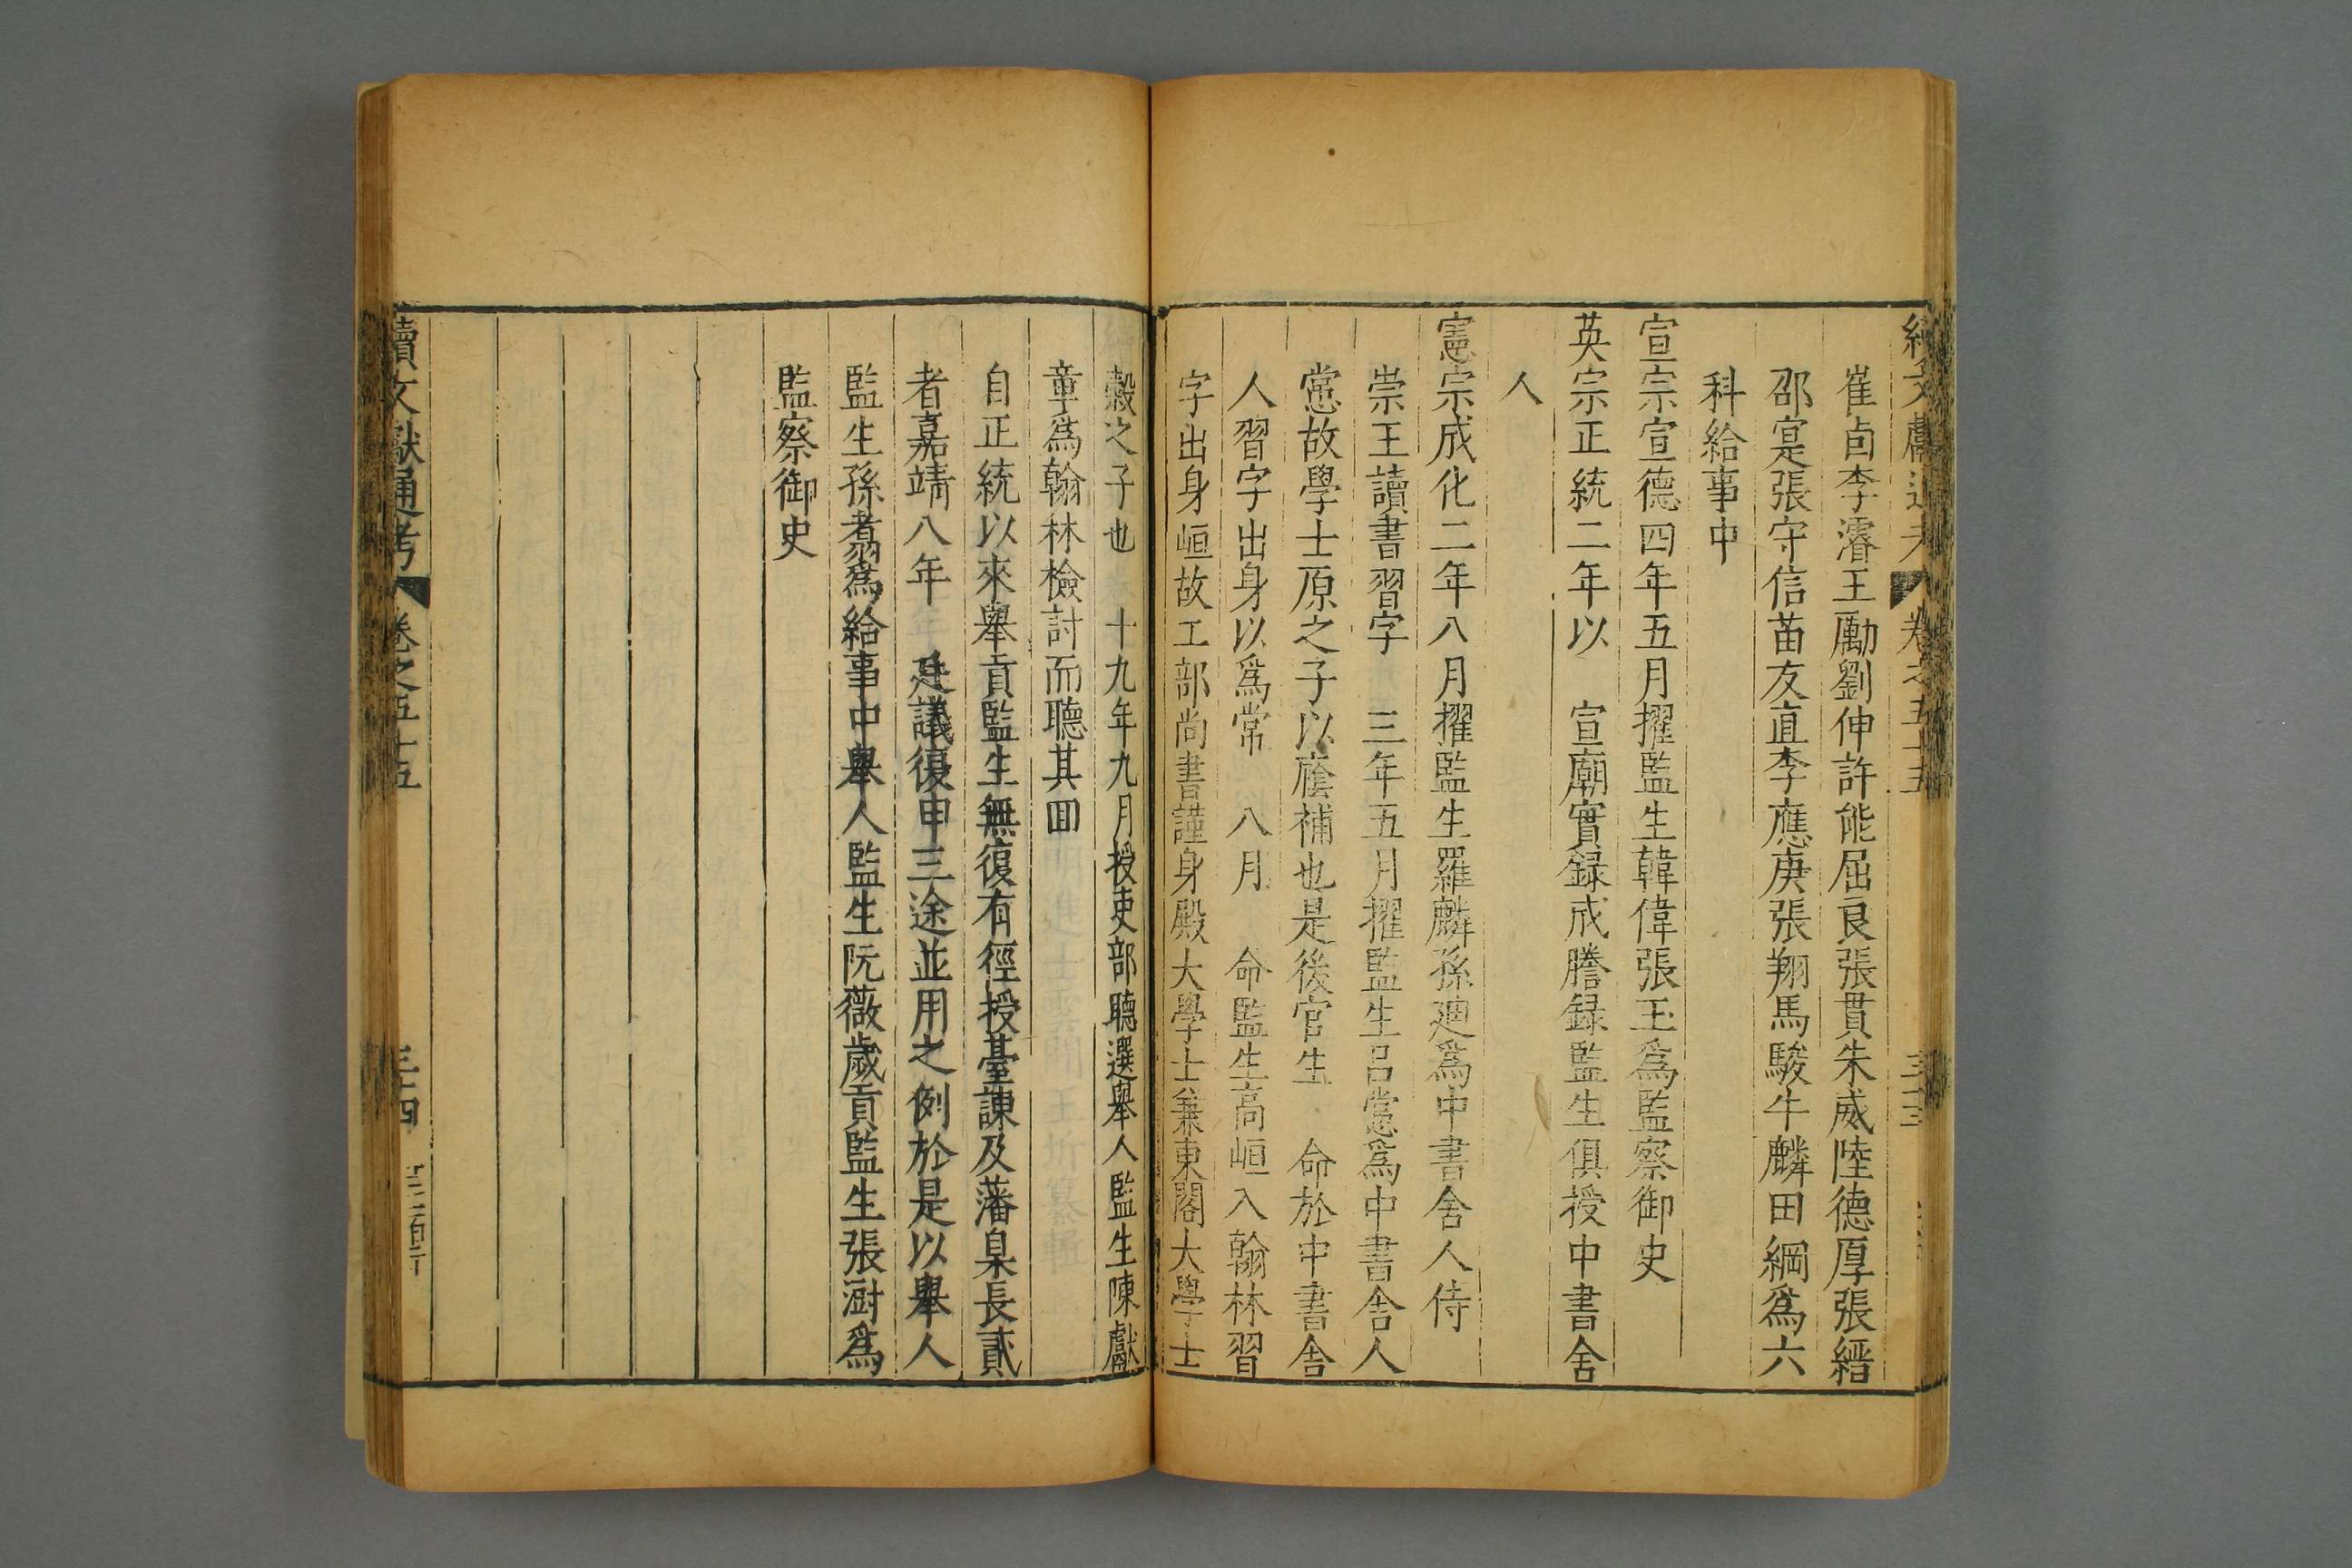 續文獻通考 卷之五十五 三十三
崔卣李濬王勵劉伸許能屈良張貫朱威陸德厚張縉
邵寔張守信苗友直李應庚張翔馬駿牛麟田綱爲六
科給事中
宣宗宣德四年五月擢監生韓偉張玉爲監察御史
英宗正統二年以 宣廟實録成謄録監生俱授中書舍
人
憲宗成化二年八月擢監生羅麟孫廻爲中書舍人侍
崇王讀書習字 三年五月擢監生呂㦂爲中書舍人
㦂故學士原之子以廕補也是後官生 命於中書舍
人習字出身以爲常 八月 命監生高峘入翰林習
字出身峘故工部尚書謹身殿大學士兼東閣大學士
榖之子也 十九年九月授吏部聽選舉人監生陳獻
章爲翰林檢討而聽其回
自正統以來舉貢監生無復有徑授臺諫及藩臬長貳
者嘉靖八年 廷議復申三途並用之例於是以舉人
監生孫翥爲給事中舉人監生阮薇歲貢監生張澍爲
監察御史
續文獻通考 卷之五十五 三十四